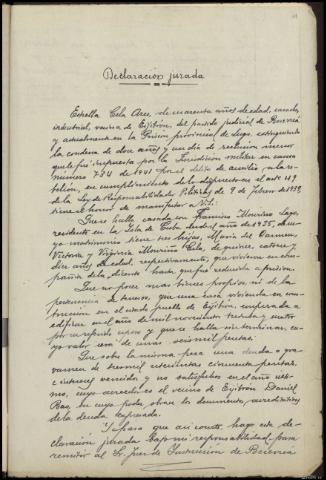 Declaracion jurada
Estrella Cela Arce, de cuarenta años de edad, casada,
industrial, vecina de Eijibrón, del partido judicial de Becerreá
y actualmente en la Prision provincial de Lugo, extinguiendo
la condena de doce años y un dia de reclusion menor
que le fué impuesta por la Jurisdiccion militar en causa
número 794 de 1941 por el delito de auxilio a la re-
belion, en cumplimiento de lo dispuesto en el art. 49
de la Ley de Responsabilidades Politicas de 9 de Febrero de 1939,
tiene el honor de manifestar a V.S.:
Que se halla casada con Francisco Mouriño Lago,
residente en la Isla de Cuba desde el año de 1935, de cu-
yo matrimonio tiene tres hijos, María del Carmen,
Victoria y Virginia Mouriño Cela, de quince, catorce y
diez años de edad, respectivamente, que vivieron en com-
pañia de la dicente hasta que fué reducida a prision.
Que no posee mas bienes propios, ni de la
pertenencia de su esposo, que una casa vivienda en cons-
truccion en el citado pueblo de Eijibrón, empezada a
edificar en el año de mil novecientos treinta y cuatro
por su referido esposo y que se halla sin terminar, cu-
yo valor será de unas seis mil pesetas.
Que sobre la misma pesa una deuda o gra-
vamen de tres mil setecientas cincuenta pesetas
e intereses vencidos y no satisfechos en el año ulti-
mo, cuyo acreedor es el vecino de Eijibrón Daniel
en cuyo poder obran los documentos acreditativos
de la deuda expresada.
Y para que asi conste, hago esta de-
claración jurada bajo mi responsabilidad para
remitir al Sr. Juez de Instruccion de Becerreá